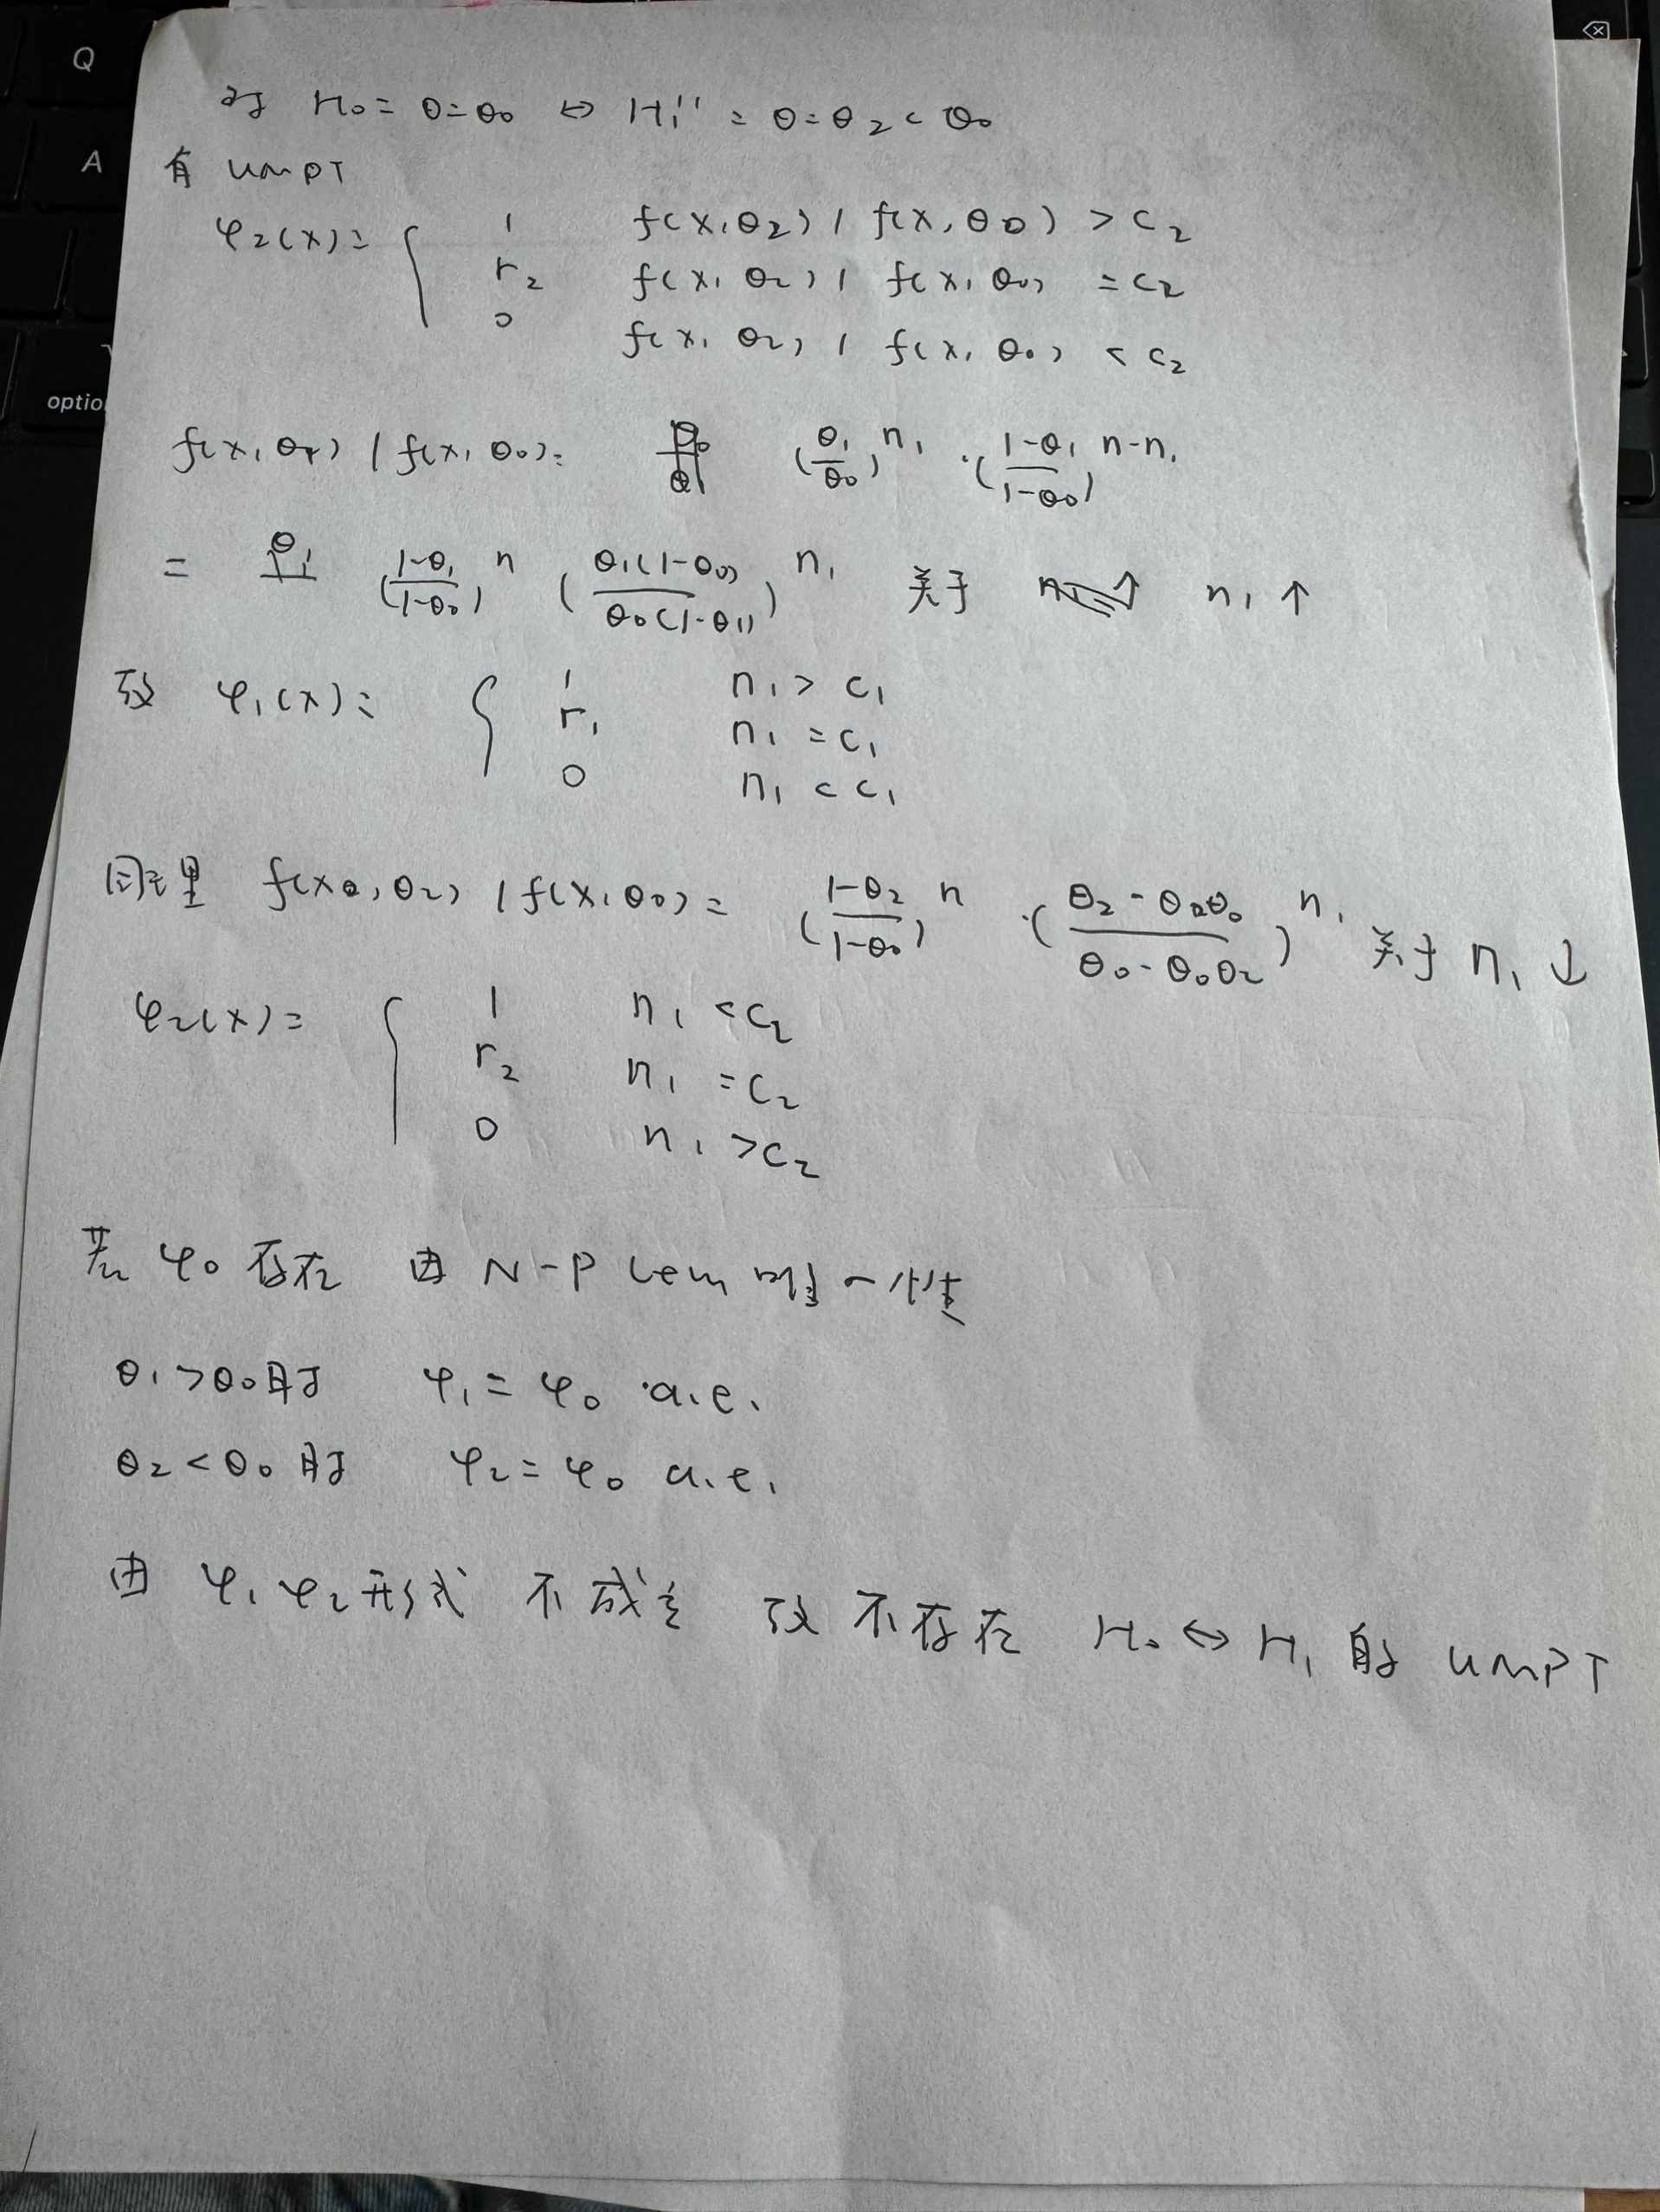 对 H₀: θ=θ₀ ↔ H₁'': θ=θ₂<θ₀
有 UMPT
φ₂(x)= { 1 f(x,θ₂) / f(x,θ₀) > c₂
r₂ f(x,θ₂) / f(x,θ₀) = c₂
0 f(x,θ₂) / f(x,θ₀) < c₂
f(x,θ₁) / f(x,θ₀)= (θ₁/θ₀)^n₁ ·((1-θ₁)/(1-θ₀))^n-n₁
= ((1-θ₁)/(1-θ₀))^n (θ₁(1-θ₀)/θ₀(1-θ₁))^n₁ 关于 n₁↑
故 φ₁(x)= { 1 n₁ > c₁
r₁ n₁ = c₁
0 n₁ < c₁
同理 f(x,θ₂) / f(x,θ₀)= ((1-θ₂)/(1-θ₀))^n ·((θ₂-θ₂θ₀)/(θ₀-θ₀θ₂))^n₁ 关于 n₁↓
φ₂(x)= { 1 n₁ < c₂
r₂ n₁ = c₂
0 n₁ > c₂
若 φ₀ 存在 由 N-P Lem 唯一性
θ₁>θ₀时 φ₁=φ₀ a.e.
θ₂<θ₀时 φ₂=φ₀ a.e.
由 φ₁ φ₂形式 不成立 故 不存在 H₀ ↔ H₁ 的 UMPT
Q
A
optio